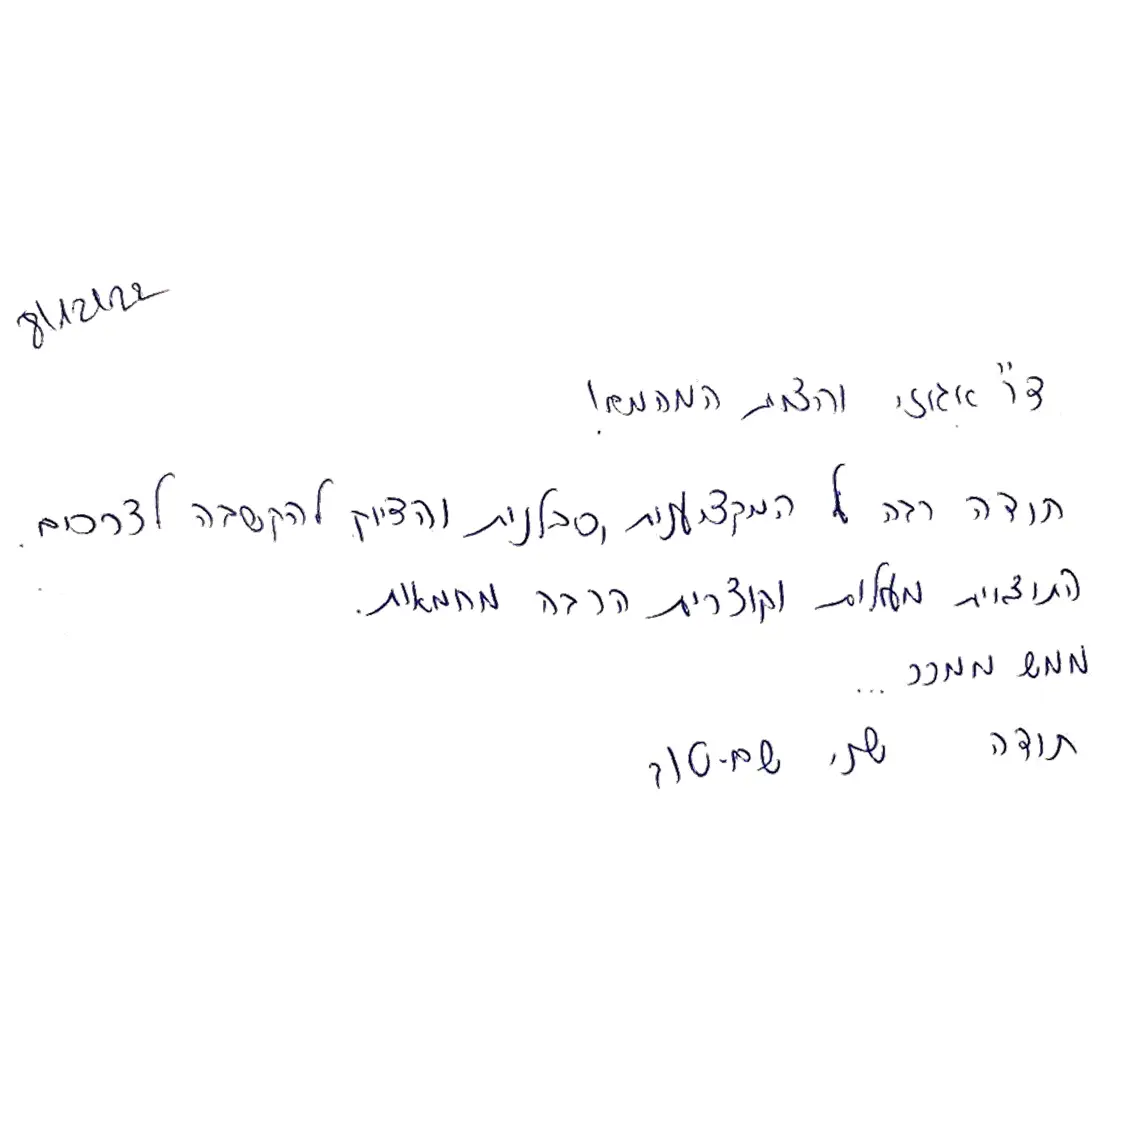 8/12/22
ד״ר אגוזי והצוות המהמם!
תודה רבה על המקצוענית, סבלנית והדיוק להקשבה לצרכים.
התוצאות מעלות וקוצרות הרבה מחמאות.
ממש ממכר...
תודה שני שם-טוב